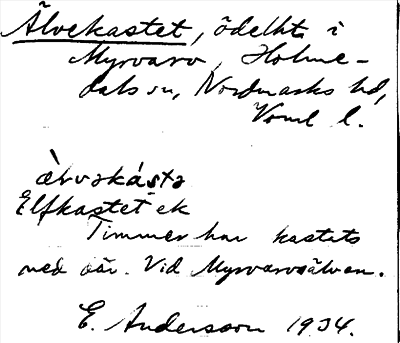 Älvekastet, ödelht i
Myrvarv, Holme-
dals sn, Nordmarks hd,
Vrml l.
Elfkastet ek
Timmer har kastats
ned där. Vid Myrvarvsälven.
E. Andersson 1934.